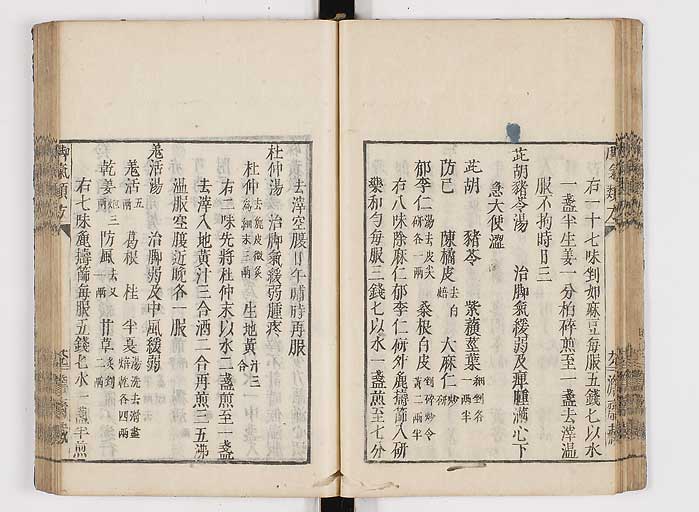 右一十七味剉如麻豆每服五錢七以水
一盞半生姜一分拍碎煎至一盞去滓溫
服不拘時日三
茈胡豬苓湯　治脚氣緩弱及痺腫滿心下
急大便澀
茈胡　豬苓　紫蘇莖葉 細剉各一兩半
防已　陳橘皮 去白焙　大麻仁 炒研
郁李仁 湯去皮尖研各一兩　桑根白皮 剉碎炒令黃二兩半
右八味除麻仁郁李仁研外麄擣篩入研
藥和勻每服三錢七以水一盞煎至七分
去滓空腹日午晡時再服
杜仲湯　治脚氣緩弱腫疼
杜仲 去麄皮微炙為細末三兩　生地黃汁 三合
右二味先將杜仲末以水二盞煎至一盞
去滓入地黃汁三合酒二合再煎三五沸
溫服空腹近晚各一服
羗活湯　治脚弱及中風緩弱
羗活 五兩　葛根　桂　半夏 湯洗去滑盡焙乾各四兩
乾姜 炮三兩　防風 去叉一兩　甘草 炙剉二兩
右七味麄擣篩每服五錢七水一盞半煎
脚氣類方